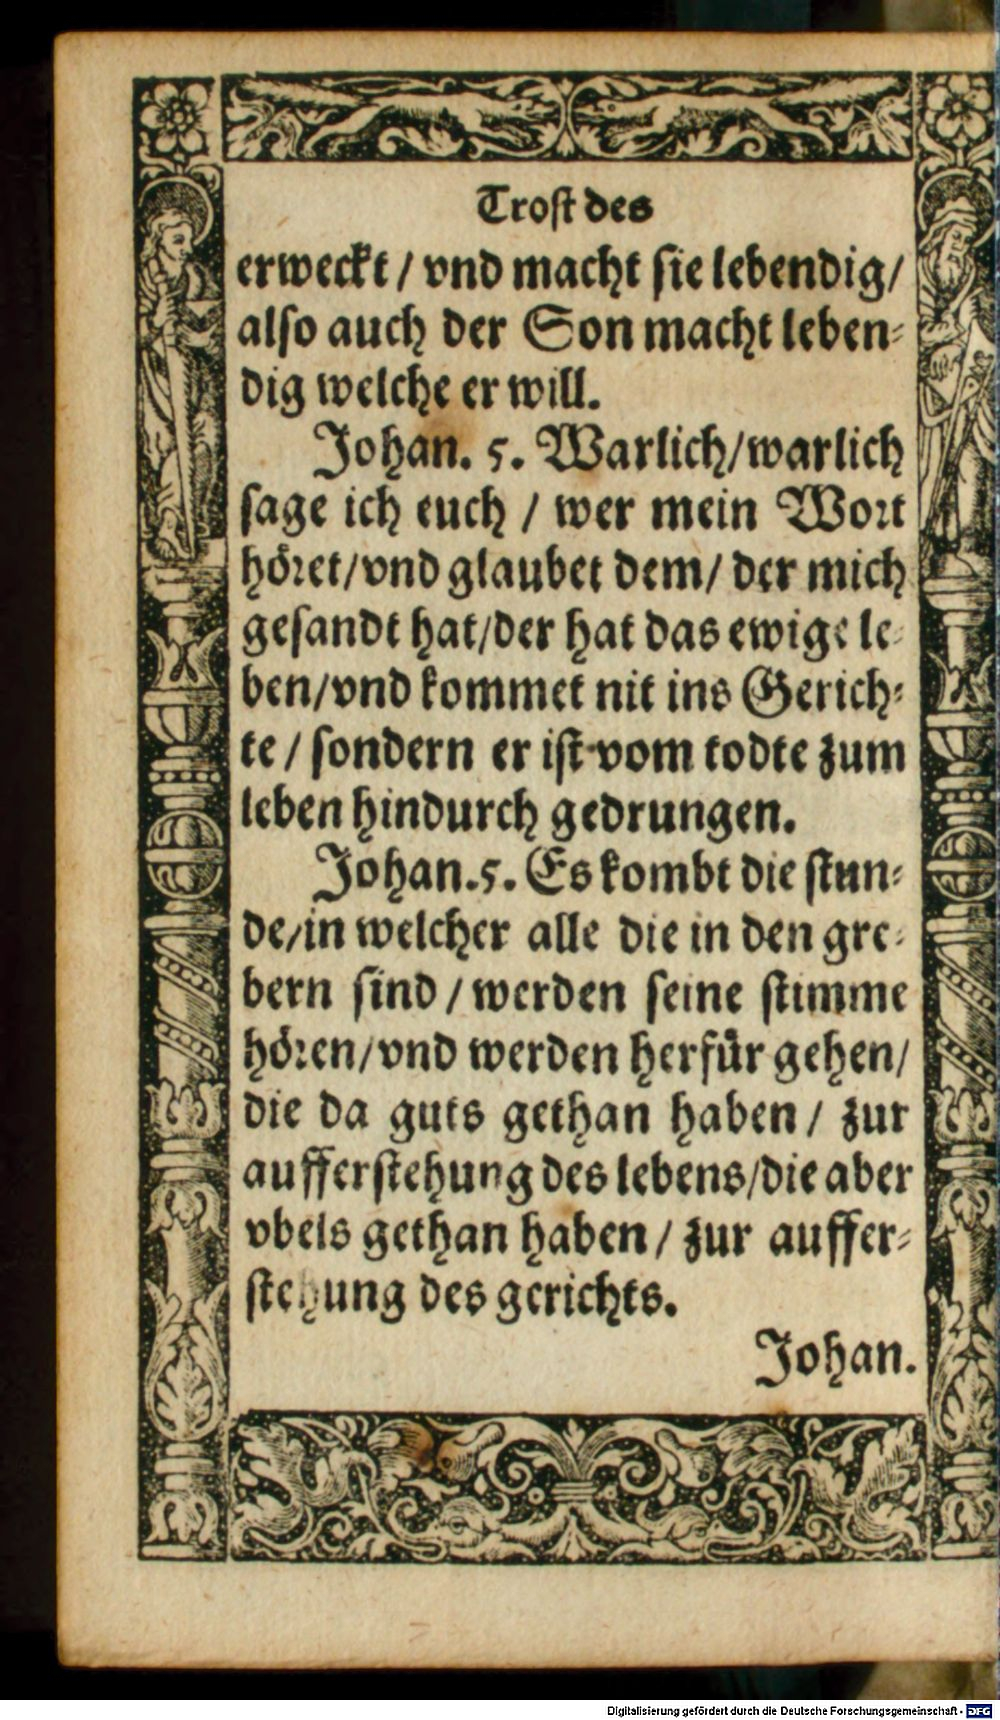 Trost des
erweckt / vnd macht sie lebendig /
also auch der Son macht leben⸗
dig welche er will.
Johan. 5. Warlich / warlich
sage ich euch / wer mein Wort
höret / vnd glaubet dem / der mich
gesandt hat / der hat das ewige le⸗
ben / vnd kommet nit ins Gerich⸗
te / sondern er ist vom todte zum
leben hindurch gedrungen.
Johan. 5. Es kombt die stun⸗
de / in welcher alle die in den gre⸗
bern sind / werden seine stimme
hören / vnd werden herfür gehen /
die da guts gethan haben / zur
aufferstehung des lebens / die aber
vbels gethan haben / zur auffer⸗
stehung des gerichts.
Johan.
Digitalisierung gefördert durch die Deutsche Forschungsgemeinschaft - DFG